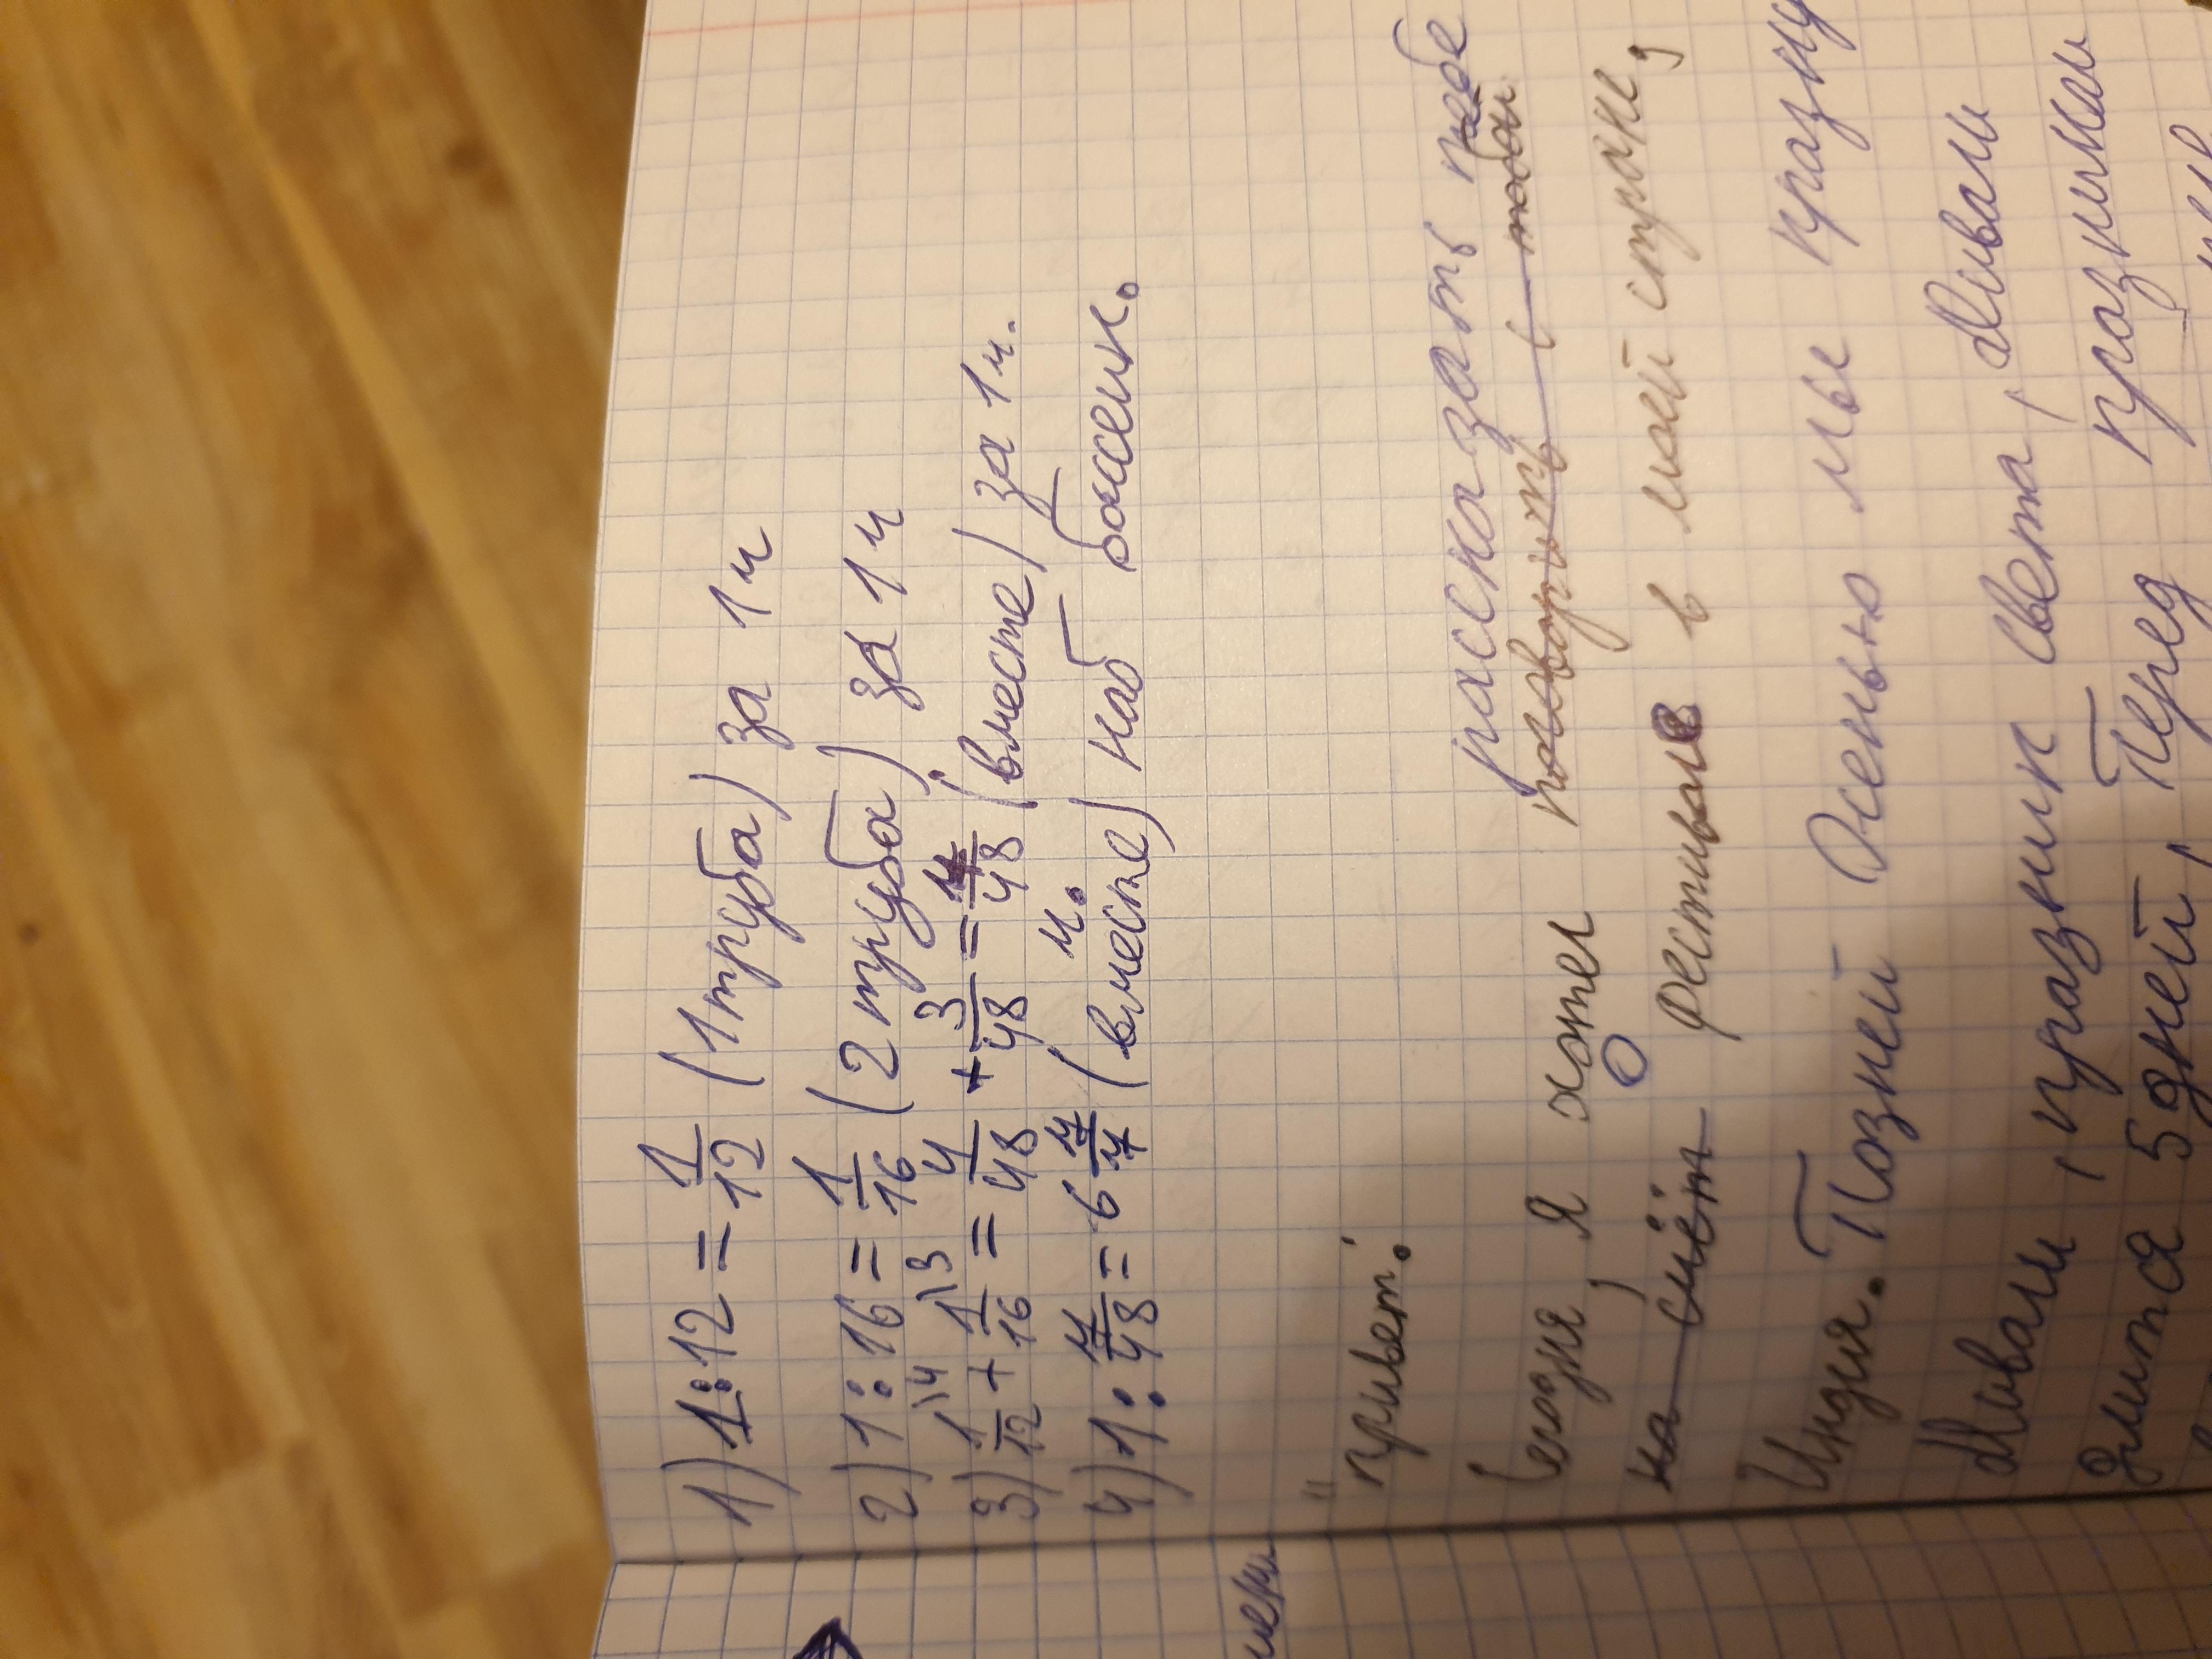 1) 1:12 = 1/12 (1 труба) за 1 ч
2) 1:16 = 1/16 (2 труба) за 1 ч
3) 1/12\4 + 1/16\3 = 4/48 + 3/48 = 7/48 (вместе) за 1 ч.
4) 1: 7/48 = 6 ч. (вместе) наб
"
привет!
рассказать тебе
Сегодня, я хотел поговорить с тобой
на счёт О фестивале в моей стране,
Индия. Поздней Осенью мы празну
Дивали, праздник света, Дивали
длится 5 дней, Перед празникам